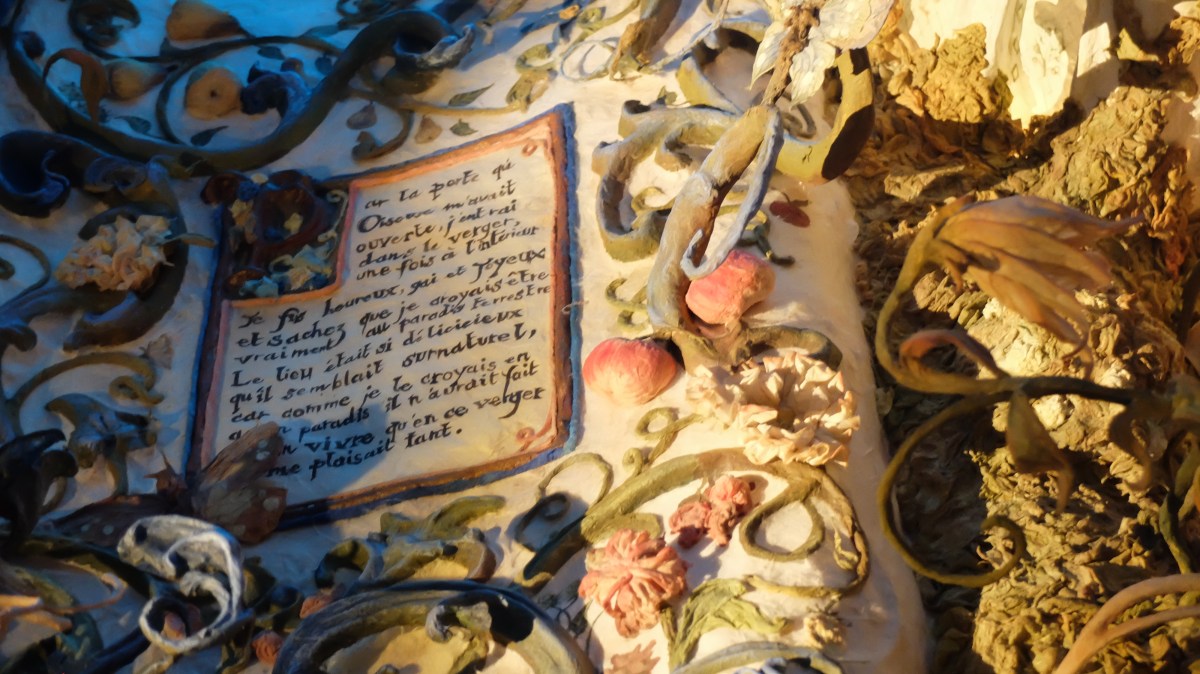 ar la porte qu'
Oiseuse m'avait
ouverte, j'entrai
dans le verger,
une fois à l'intérieur
Je fus heureux, gai et joyeux
et sachez que je croyais être
vraiment au paradis terrestre
Le lieu était si délicieux
qu'il semblait surnaturel,
car comme je le croyais en
paradis il n'aurait fait
n vivre qu'en ce verger
me plaisait tant.